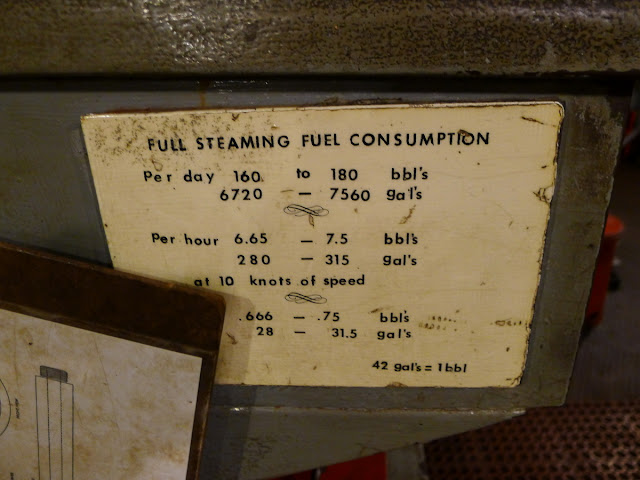 FULL STEAMING FUEL CONSUMPTION
Per day 160 to 180 bbl's
6720 — 7560 gal's
Per hour 6.65 — 7.5 bbl's
280 — 315 gal's
at 10 knots of speed
.666 — .75 bbl's
28 — 31.5 gal's
42 gal's = 1 bbl